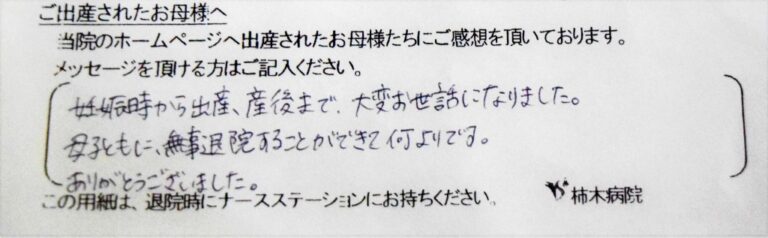 ご出産されたお母様へ
当院のホームページへ出産されたお母様たちにご感想を頂いております。
メッセージを頂ける方はご記入ください。
妊娠時から出産、産後まで、大変お世話になりました。
母子ともに、無事退院することができて何よりです。
ありがとうございました。
この用紙は、退院時にナースステーションにお持ちください。 柿木病院